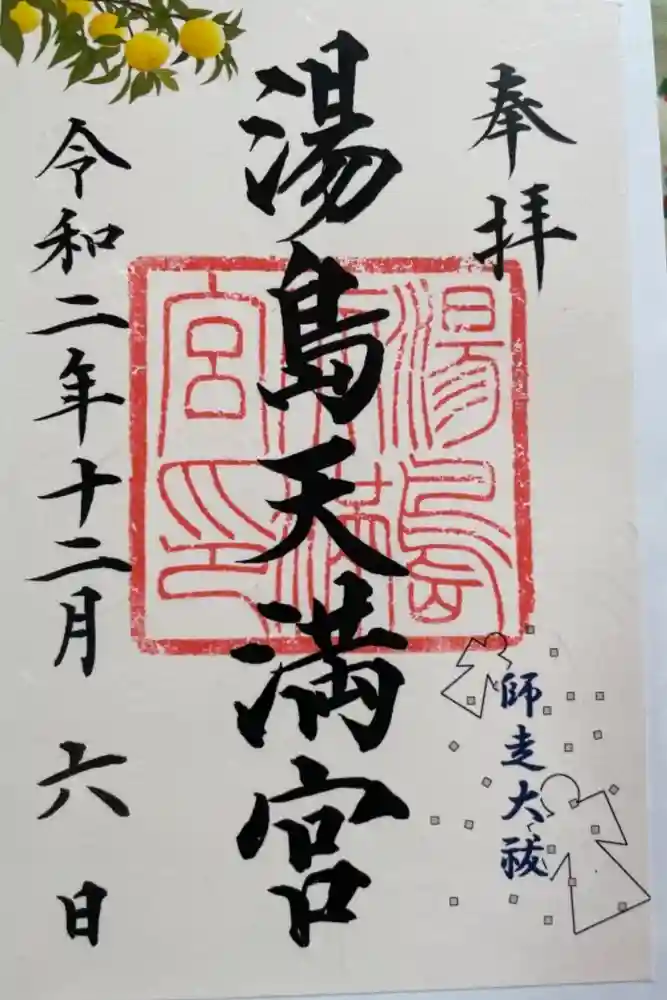 奉拝
湯島天満宮
湯島天満宮印
師走大祓
令和二年十二月六日